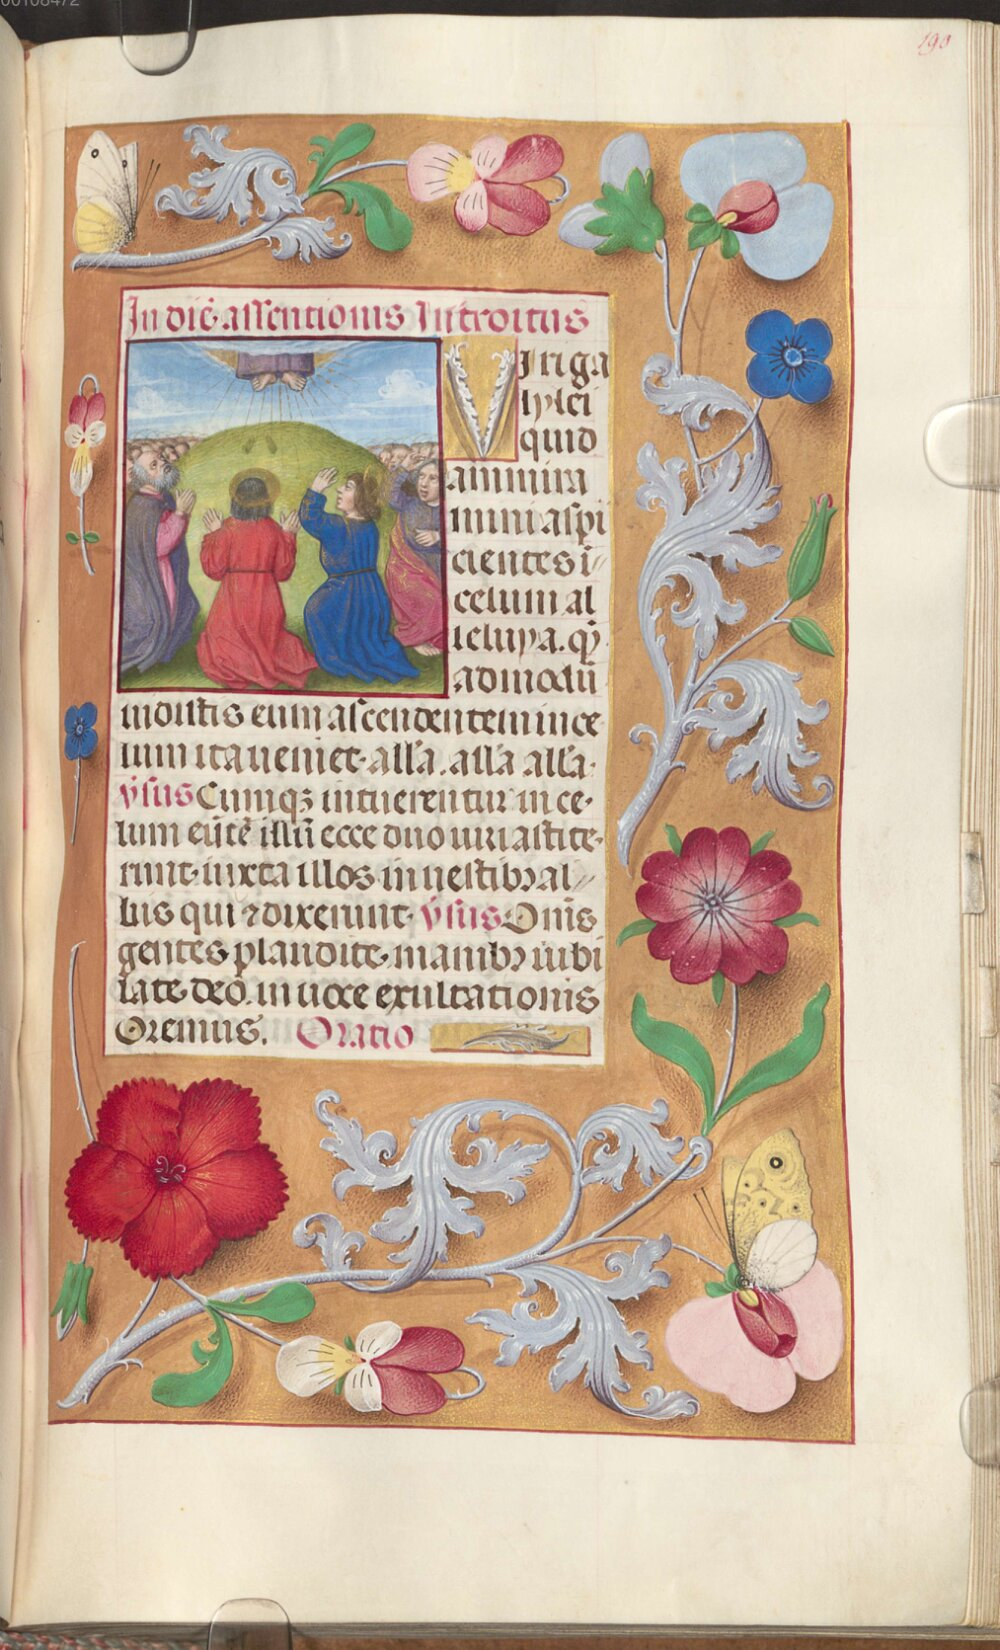 190
In diē assentionis Introitus
Viri ga
lylei
quid
ammira
mini aspi
cientes ī
celum al
leluya. qȝ
admodū
uidistis eum ascendentem in ce
lum ita ueniet. all'a. all'a all'a.
v̓sus Cumqȝ intuerentur in ce
lum eūtē illū ecce duo uiri astite
runt iuxta illos in uestibꝫ al
bis qui ⁊ dixerunt. v̓sus Om̄s
gentes plaudite manibꝫ iubi
late deo in uoce exultationis
Oremus. Oratio